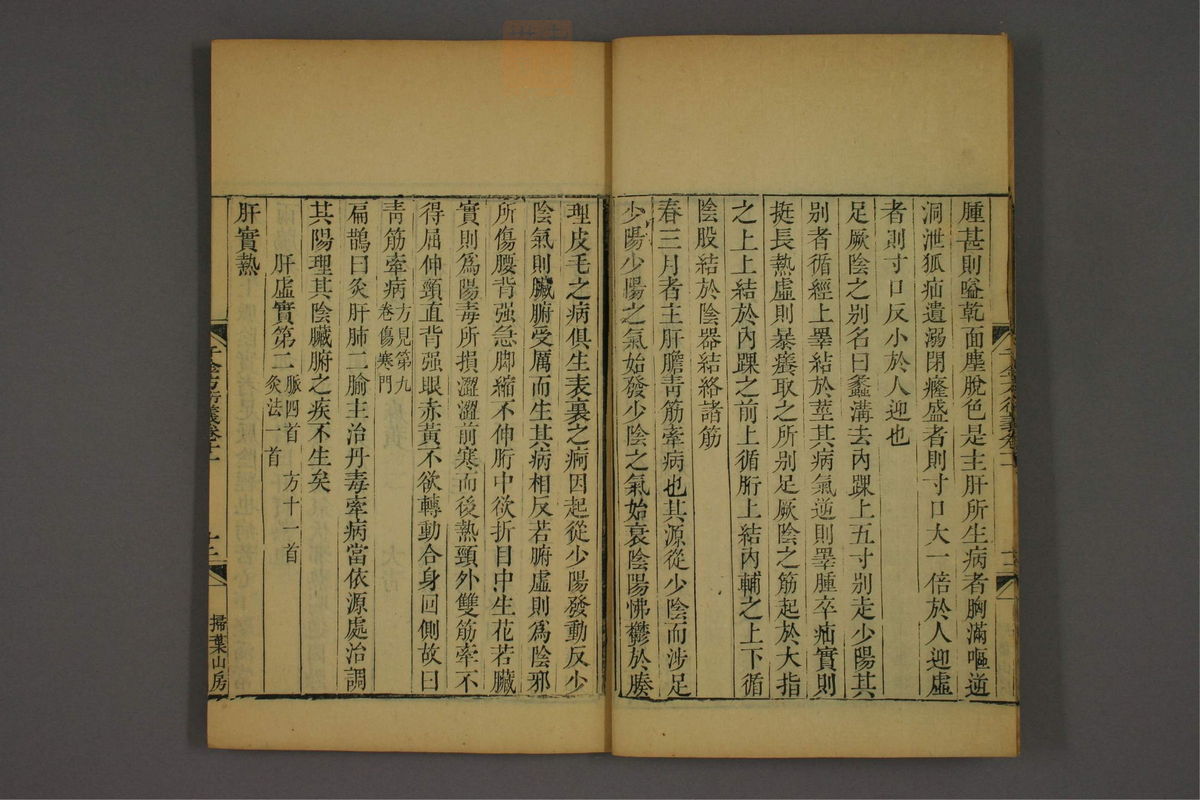 腫甚則嗌乾面塵脫色是主肝所生病者胸滿嘔逆
洞泄狐疝遺溺閉癃盛者則寸口大一倍於人迎虛
者則寸口反小於人迎也
足厥陰之別名曰蠡溝去內踝上五寸別走少陽其
別者循經上睪結於莖其病氣逆則睪腫卒疝實則
挺長熱虛則暴癢取之所別足厥陰之筋起於大指
之上上結於內踝之前上循䯒上結內輔之上下循
陰股結於陰器結絡諸筋
春三月者主肝膽青筋牽病也其源從少陰而涉足
少陽少陽之氣始發少陰之氣始衰陰陽怫鬱於腠
理皮毛之病俱生表裏之疴因起從少陽發動反少
陰氣則臟腑受厲而生其病相反若腑虛則爲陰邪
所傷腰背强急脚縮不伸䯒中欲折目中生花若臟
實則爲陽毒所損澀澀前寒而後熱頸外雙筋牽不
得屈伸頸直背强眼赤黃不欲轉動合身回側故曰
青筋牽病方見第九卷傷寒門
扁鵲曰灸肝肺二腧主治丹毒牽病當依源處治調
其陽理其陰臟腑之疾不生矣
肝虛實第二脈四首 方十一首 灸法一首
肝實熱
掃葉山房